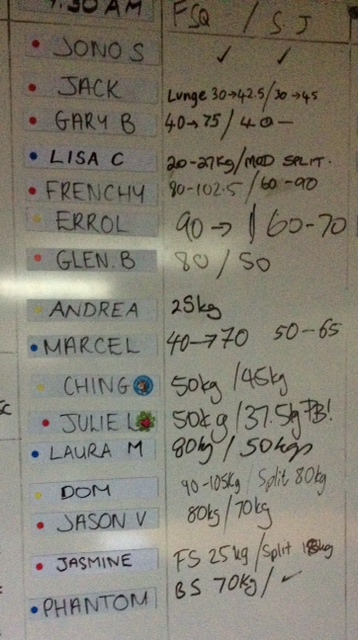 7.30 AM FSQ / SJ
JONO S ✓ ✓
JACK Lunge 30→42.5/30→45
GARY B 40→75/40—
LISA C 20-27kg/MOD SPLIT.
FRENCHY 80-102.5/60-90
ERROL 90→ / 60-70
GLEN.B 80/50
ANDREA 25kg
MARCEL 40→70 50-65
CHING 50kg/45kg
JULIE L 50kg/37.5kg PB!
LAURA M 80kg/50kgs
DOM 90-105kg/Split 80kg
JASON V 80kg/70kg
JASMINE FS 25kg/Split
PHANTOM BS 70kg/✓